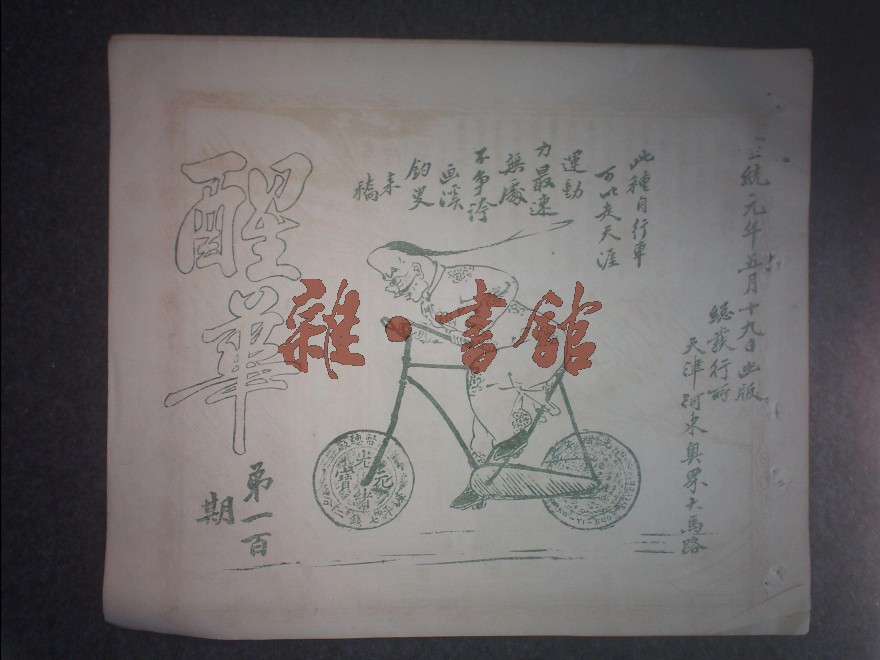 統元年五月十九日出版
總發行所
天津河東奧界大馬路
此種自行車
可以走天涯
運動
力最速
無處
不爭誇
画溪
釣叟
來
稿
醒華
第一百
期
雜·書館
光緒元寶